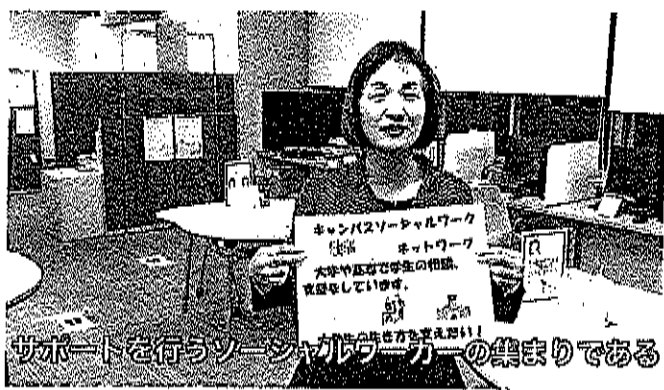 キャンパスソーシャルワーク
ネットワーク
大学や高専で学生の相談、
支援をしています。
生き方を支えたい!
サポートを行うソーシャルワーカーの集まりである